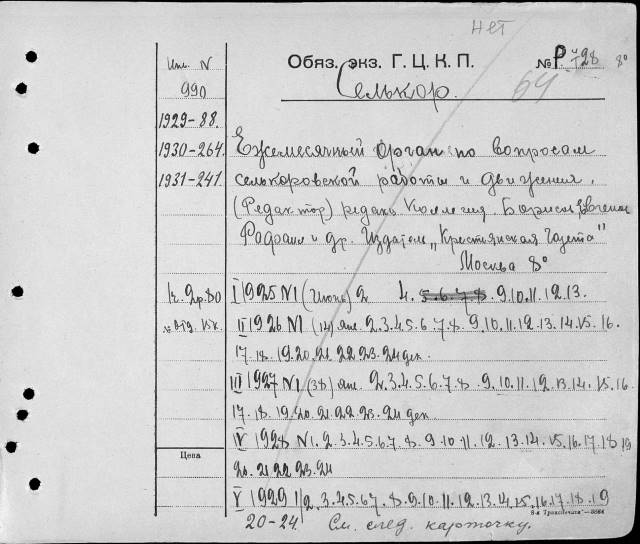 нет
Обяз. экз. Г.Ц.К.П. № Р 728 8°
Инв. N
990
Селькор. 64
1929-88.
1930-264. Ежемесячный орган по вопросам
1931-241. селькоровской работы и движения.
(Редактор) редакц Коллегия. Борисов
и др. Издатель „Крестьянская Газета"
Москва 8°
1г. 2р.80 I 1925 N1 (Июнь) 2 4. 5.6.7.8. 9.10.11.12.13.
II 1926 N1 (14) янв 2.3.4.5.6.7.8. 9.10.11.12.13.14.15.16.
17.18.19.20.21.22.23.24 дек.
III 1927 N1 (38) янв 2.3.4.5.6.7.8. 9.10.11.12.13.14.15.16
17.18.19.20.21.22.23.24 дек
IV 1928 N1.2.3.4.5.6.7.8.9.10.11.12.13.14.15.16.17.18 19
Цена
20.21.22.23.24
V 1929 1 2.3.4.5.6.7.8.9.10.11.12.13.14.15.16.17.18.19
20-24. См. след. карточку.